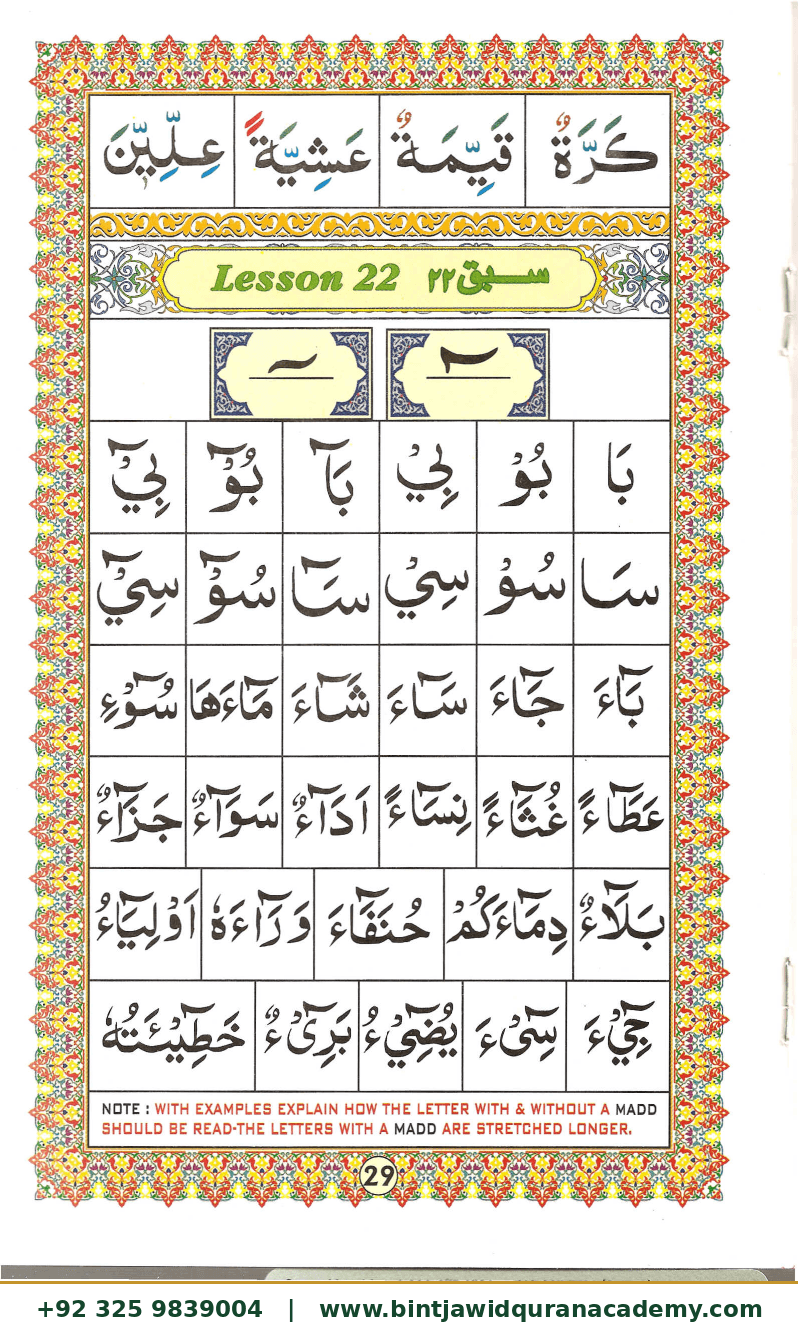 كَرَّةٌ قَيِّمَةٌ عَشِيَّةً عِلِّيِّيْنَ
Lesson 22 سبق ۲۲
بَا بُوْ بِيْ بَآ بُوْٓ بِيْٓ
سَا سُوْ سِيْ سَآ سُوْٓ سِيْٓ
بَآءَ جَآءَ سَآءَ شَآءَ مَآءَهَا سُوْٓءِ
عَطَآءً غُثَآءً نِسَآءً اَدَآءٌ سَوَآءٌ جَزَآءٌ
بَلَآءٌ دِمَآءَكُمْ حُنَفَآءَ وَرَآءَهٗ اَوْلِيَآءُ
جِيْٓءَ سِیْٓءَ يُضِيْٓءُ بَرِیْٓءٌ خَطِيْٓـَٔتُهٗ
NOTE : WITH EXAMPLES EXPLAIN HOW THE LETTER WITH & WITHOUT A MADD
SHOULD BE READ-THE LETTERS WITH A MADD ARE STRETCHED LONGER.
29
+92 325 9839004 | www.bintjawidquranacademy.com